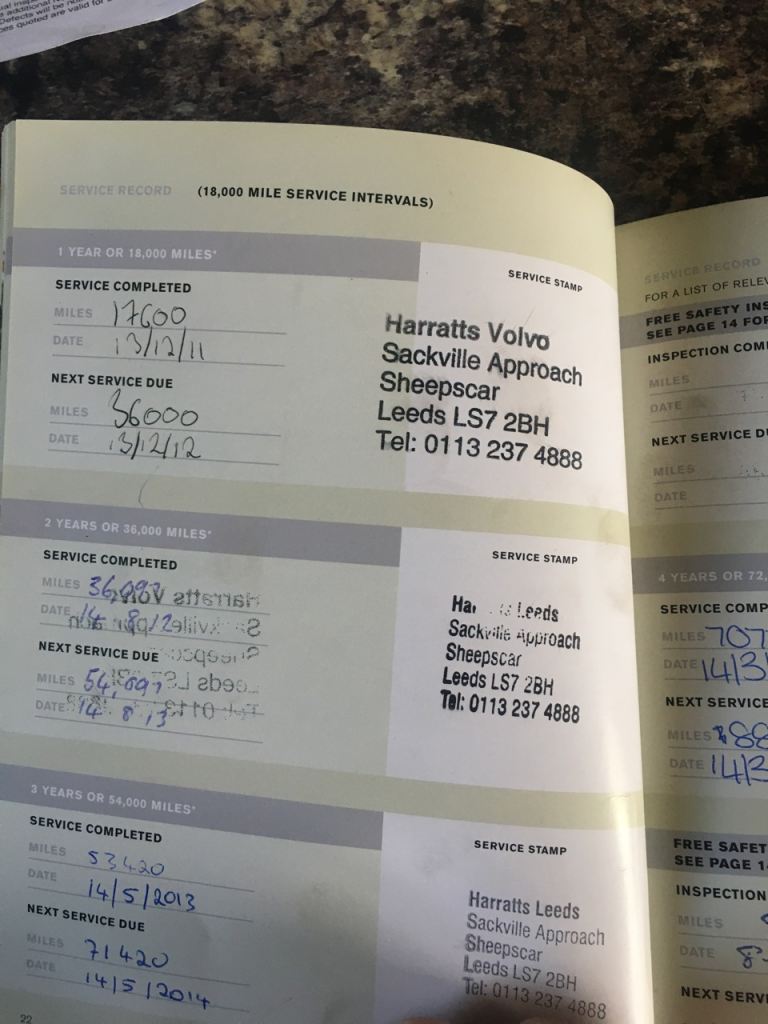 Defects will be
es quoted are valid for
SERVICE RECORD (18,000 MILE SERVICE INTERVALS)
1 YEAR OR 18,000 MILES*
SERVICE STAMP
SERVICE COMPLETED
MILES 17600
DATE 13/12/11
NEXT SERVICE DUE
MILES 36000
DATE 13/12/12
Harratts Volvo
Sackville Approach
Sheepscar
Leeds LS7 2BH
Tel: 0113 237 4888
2 YEARS OR 36,000 MILES*
SERVICE STAMP
SERVICE COMPLETED
MILES 36,097
DATE 14 8/12
NEXT SERVICE DUE
MILES 54,097
DATE 14 8 13
Leeds
Sackville Approach
Sheepscar
Leeds LS7 2BH
Tel: 0113 237 4888
3 YEARS OR 54,000 MILES*
SERVICE STAMP
SERVICE COMPLETED
MILES 53420
DATE 14/5/2013
NEXT SERVICE DUE
MILES 71420
DATE 14/5/2014
Harratts Leeds
Sackville Approach
Sheepscar
Leeds LS7 2BH
Tel: 0113 237 4888
22
SERVICE RECORD
FOR A LIST OF RELEV
FREE SAFETY INS
SEE PAGE 14 FOR
INSPECTION COM
MILES
DATE
NEXT SERVICE DU
MILES
DATE
4 YEARS OR 72,
SERVICE COMP
MILES 707
DATE 14/3
NEXT SERVICE
MILES 88
DATE 14/3
FREE SAFET
SEE PAGE 1
INSPECTION
MILES
DATE 8
NEXT SERVI